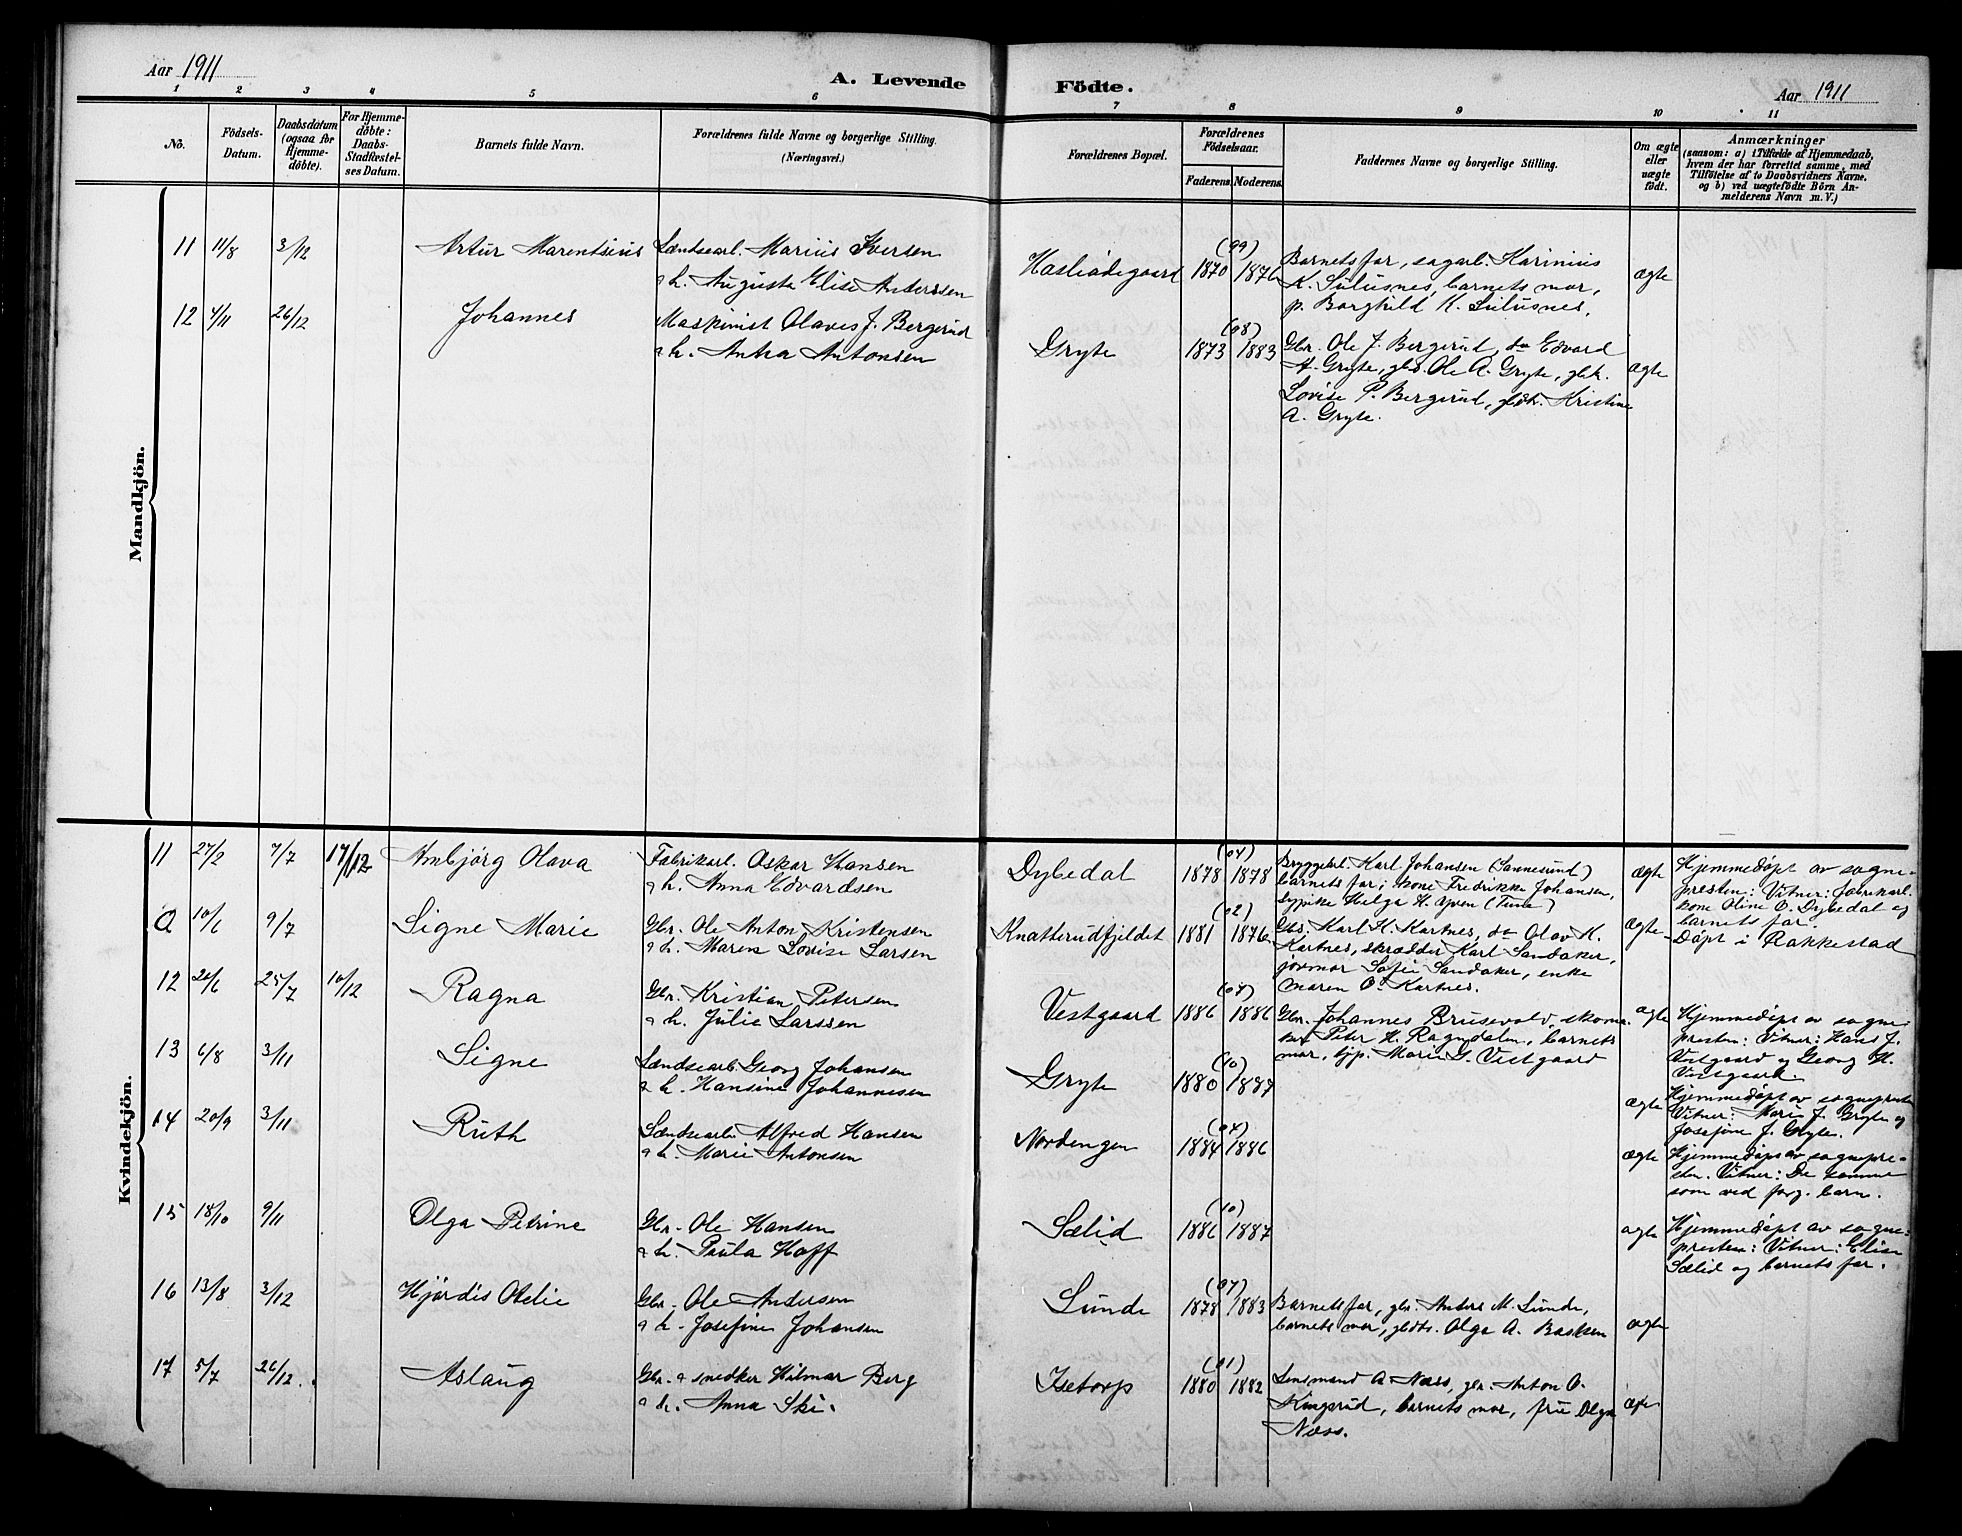 Aar 1911
A. Levende Födte.
Aar 1911
1 2 3 4 5 6 7 8 9 10 11
No.
Födsels-
Datum.
Daabsdatum
(ogsaa for
Hjemme-
döbte).
For Hjemme-
döbte:
Daabs-
Stadfæstel-
ses Datum.
Barnets fulde Navn.
Forældrenes fulde Navne og borgerlige Stilling.
(Næringsvei.)
Forældrenes Bopæl.
Forældrenes
Födselsaar.
Faderens. Moderens.
Faddernes Navne og borgerlige Stilling.
Om ægte
eller
uægte
födt.
Anmærkninger
(saasom: a) i Tilfælde af Hjemmedaab,
hvem der har forrettet samme, med
Tilföielse af to Daabsvidners Navne,
og b) ved uægtefödte Börn An-
melderens Navn m. V.)
Mandkjön.
11 11/8 3/12 Artur Marentsius
Lændsearb. Marius Iversen
o h. Augusta Elise Anderssen
Hasliödegaard
(99)
1870 1876
Barnets far, sagarb. Karinius
K. Sulusnes, barnets mor,
p. Borghild K. Sulusnes.
ægte
12 4/11 26/12 Johannes
Maskinist Olaves J. Bergerud
o h. Anna Antonsen
Gryte
(08)
1873 1883
Gbr. Ole J. Bergerud, do Edvard
A. Gryte, gbs. Ole A. Gryte, gbk.
Lovise P. Bergerud, gbdtr. Kristine
A. Gryte.
ægte
Kvindekjön.
11 27/2 7/7 17/12 Ambjörg Olava
Fabrikarb. Oskar Hansen
o h. Anna Edvardsen
Dybedal
(04)
1878 1878
Bryggearb. Karl Johansen (Sannesund)
barnets far; kone Fredrikke Johansen,
Helga H. (Tune)
ægte
Hjemmedöpt av sogne-
presten: Vitner: fabrikarb.
kone Oline O. Dybedal og
barnets far.
a 10/6 9/7 Signe Marie
Gbr. Ole Anton Kristensen
o h. Maren Lovise Larsen
Knatterudfjeldet
(02)
1881 1876
Gbs. Karl H. Kartnes, do Olav K.
Kartnes, skrædder Karl Sandaker,
jormor Sofie Sandaker, enke
Maren O. Kartnes.
ægte
Döpt i Rakkestad
12 20/6 25/7 10/12 Ragna
Gbr. Kristian Petersen
o h. Julie Larssen
Vestgaard
(07)
1886 1886
Gbr. Johannes Brusevold, skoma-
ker Peter H. Ragndalen, barnets
mor, tjp. Marie G. Vestgaard
ægte
Hjemmedöpt av sogne-
presten: Vitner: Hans J.
Vestgaard og Georg H.
Vestgaard.
13 6/8 3/11 Signe
Lændsearb. Georg Johansen
o h. Hansine Johannesen
Gryte
(10)
1880 1887
ægte
Hjemmedöpt av sognepresten
Vitner: Marie J. Gryte og
Josefine J. Gryte.
14 20/9 3/11 Ruth
Lændsearb. Alfred Hansen
o h. Marie Antonsen
Nordengen
(04)
1884 1886
ægte
Hjemmedöpt av sognepre-
sten. Vitner: De samme
som ved forg. barn.
15 18/10 9/11 Olga Petrine
Gbr. Ole Hansen
o h. Paula Hoff
Sælid
(10)
1886 1887
ægte
Hjemmedöpt av sogne-
presten: Vitner: Elise
Sælid og barnets far.
16 13/8 3/12 Hjördis Otelie
Gbr. Ole Andersen
o h. Josefine Johansen
Lunde
(07)
1878 1883
Barnets far, gbr. Anders M. Lunde,
barnets mor, gbdtr. Olga A. Bakken
ægte
17 5/7 26/12 Aslaug
Gbr. o snedker Hilmar Berg
o h. Anna Ski.
Isetorp
(01)
1880 1882
Lensmand A. Næss, gbr. Anton O.
Kingsrud, barnets mor, fru Olga
Næss.
ægte